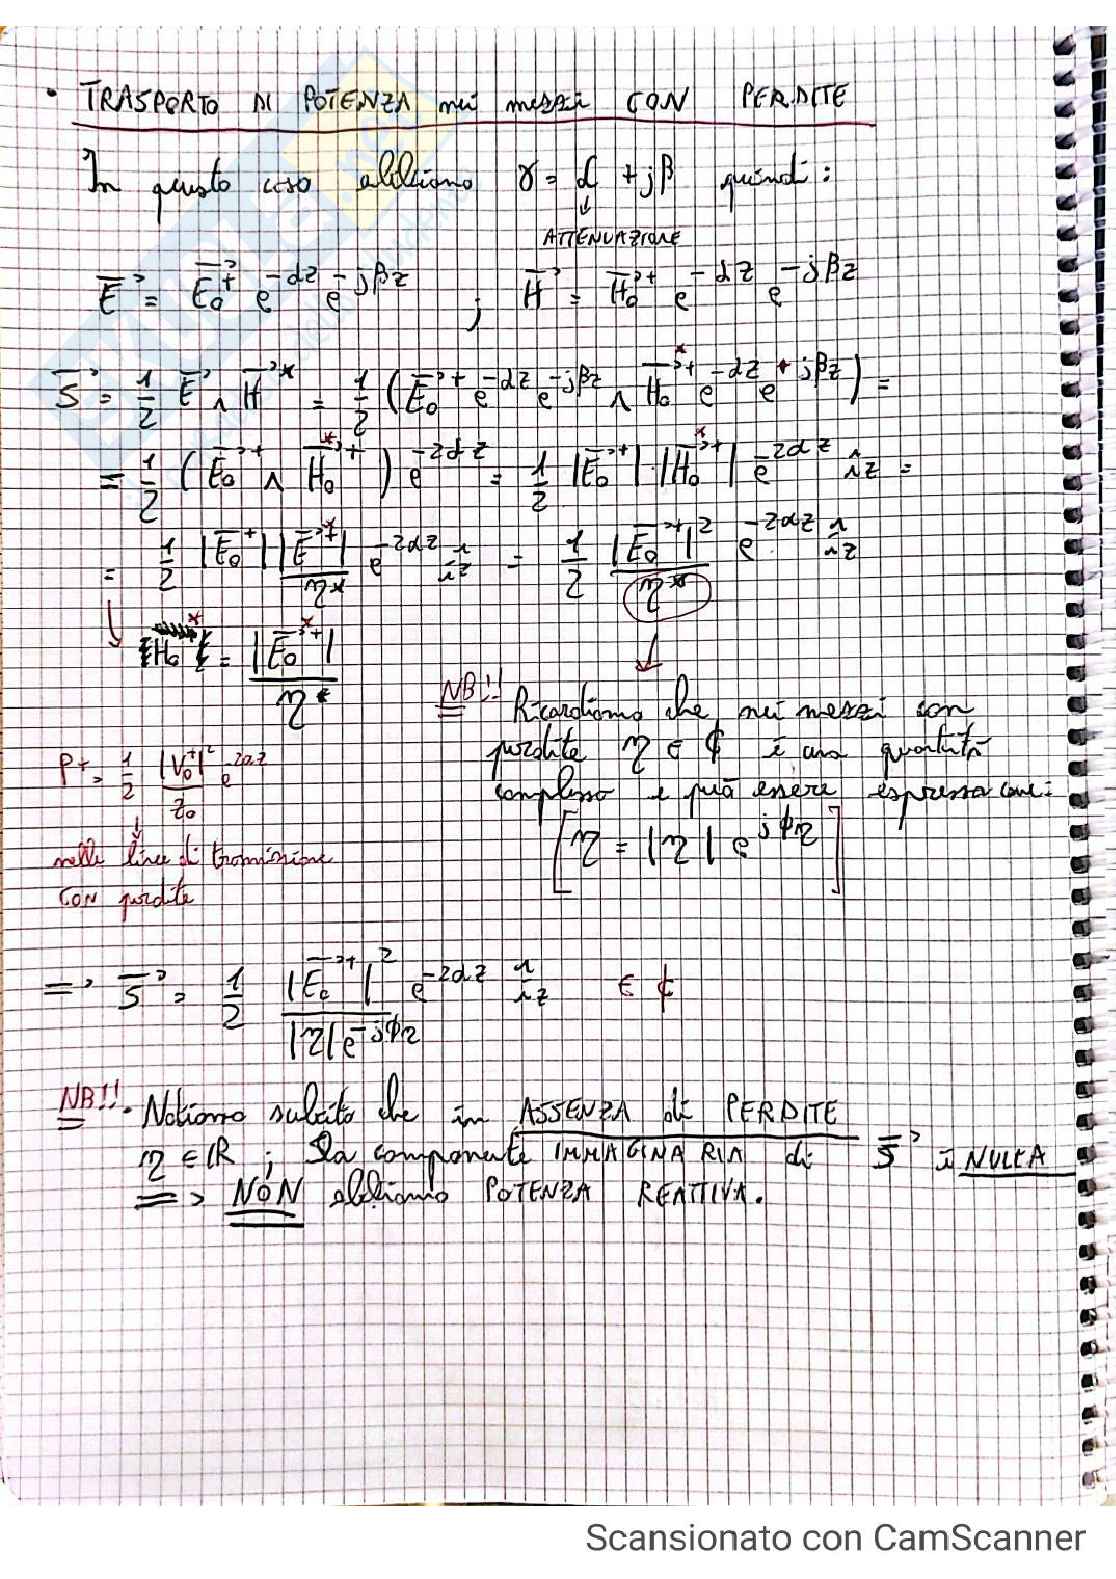 • TRASPORTO DI POTENZA nei mezzi CON PERDITE
In questo caso abbiamo γ = α + jβ quindi :
↓
ATTENUAZIONE
E⃗ = E⃗₀⁺ e^{-αz} e^{-jβz} ; H⃗ = H⃗₀⁺ e^{-αz} e^{-jβz}
S⃗ = 1/2 E⃗ ∧ H⃗* = 1/2 (E⃗₀⁺ e^{-αz} e^{-jβz} ∧ H⃗₀⁺* e^{-αz} e^{+jβz}) =
= 1/2 (E⃗₀⁺ ∧ H⃗₀⁺*) e^{-2αz} = 1/2 |E⃗₀⁺| · |H⃗₀⁺*| e^{-2αz} îz =
= 1/2 |E⃗₀⁺| |E⃗⁺*|/η* e^{-2αz} îz = 1/2 |E⃗₀⁺|²/η* e^{-2αz} îz
H₀* = |E⃗₀⁺*|/η*
NB!! Ricordiamo che nei mezzi con
perdite η ∈ ₵ è una quantità
complessa e può essere espressa come:
[η = |η| e^{jϕη}]
P+ = 1/2 |V₀⁺|²/z₀ e^{-2αz}
↓
nelle linee di trasmissione
CON perdite
=> S⃗ = 1/2 |E⃗₀⁺|²/|η| e^{-jϕη} e^{-2αz} îz ∈ ₵
NB!!. Notiamo subito che in ASSENZA di PERDITE
η ∈ ℝ ; la componente IMMAGINARIA di S⃗ è NULLA
=> NON abbiamo POTENZA REATTIVA.
Scansionato con CamScanner